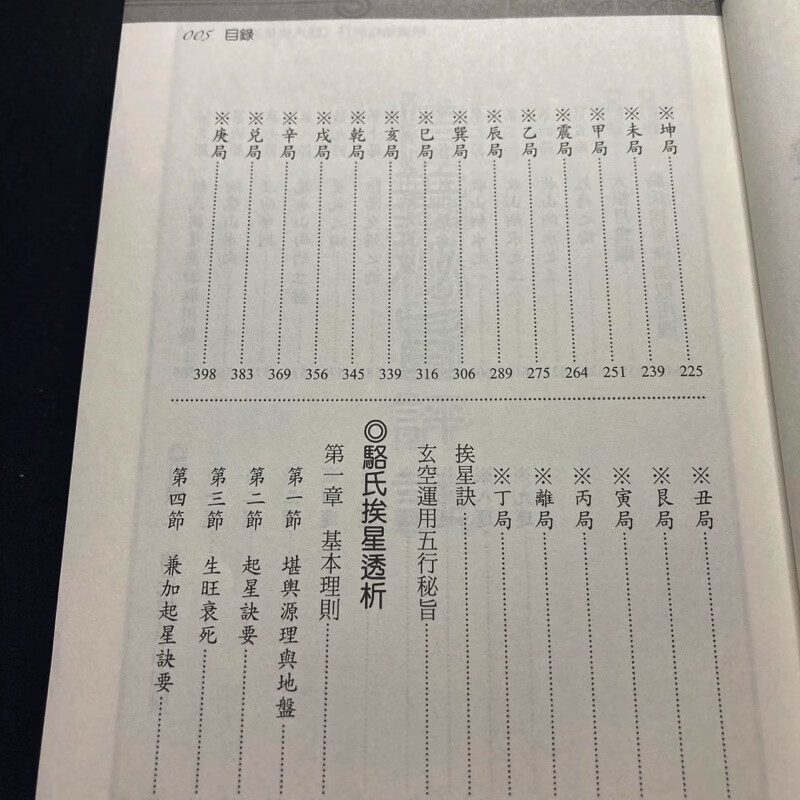 005 目錄
※坤局 225
※未局 239
※甲局 251
※震局 264
※乙局 275
※辰局 289
※巽局 306
※巳局 316
※亥局 339
※乾局 345
※戌局 356
※辛局 369
※兌局 383
※庚局 398
※丑局
※艮局
※寅局
※丙局
※離局
※丁局
挨星訣
玄空運用五行秘旨
◎駱氏挨星透析
第一章 基本理則
第一節 堪輿源理與地盤
第二節 起星訣要
第三節 生旺衰死
第四節 兼加起星訣要